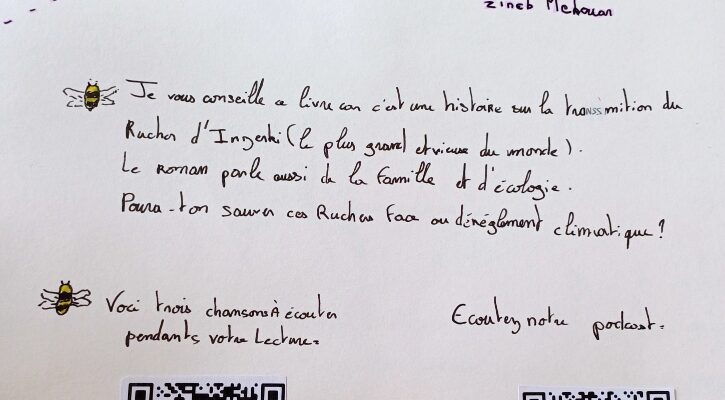 Zineb Mekouar
Je vous conseille ce livre car c'est une histoire sur la transsimition du
Rucher d'Inzerki (le plus grand et vieux du monde).
Le roman parle aussi de la famille et d'écologie.
Poura-t'on sauver ces Ruchers Face au déréglement climatique ?
Voci trois chansons À écouter
pendants votre Lecture.
Ecoutez notre podcast.